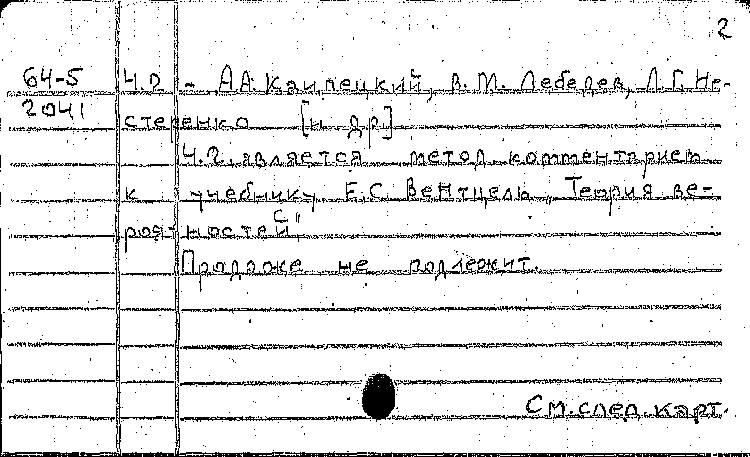 2
64-5
2041
Ч.2 - А.А. Каипецкий, В.М. Лебедев, Л.Г. Не-
стеренко [и др]
Ч.2. является метод комментарием
к учебнику Е.С. Вентцель „Теория ве-
роятностей"
Продаже не подлежит.
См. след. карт.